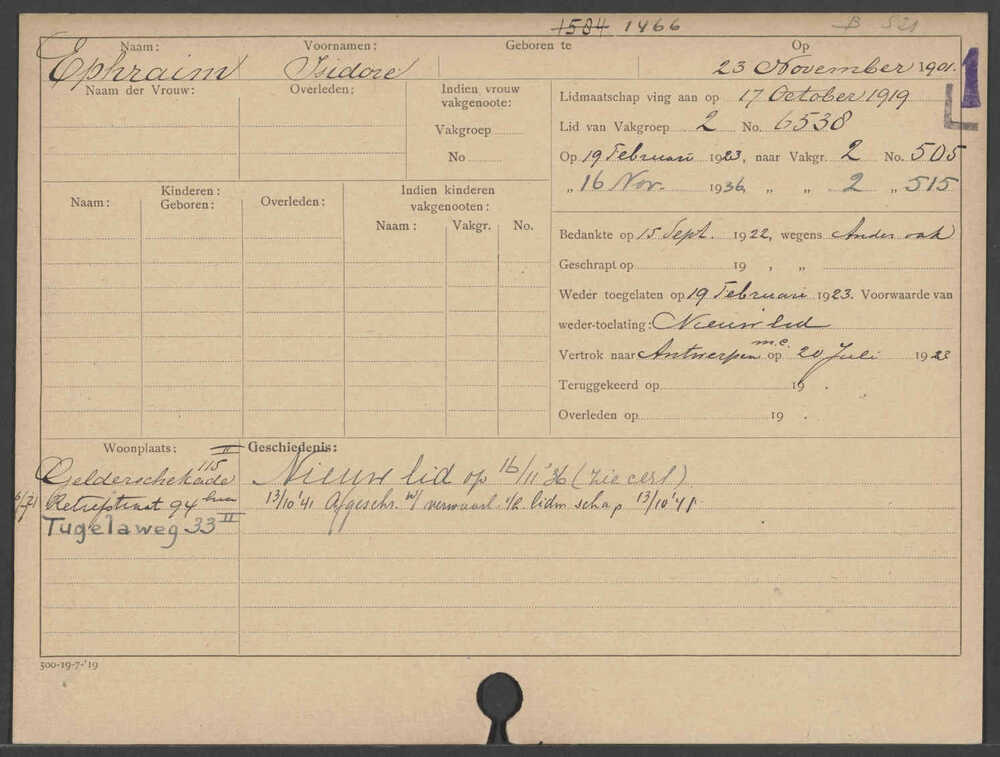 1584 1466 B 521
Naam: Voornamen: Geboren te Op
Ephraim Isidore 23 November 1901.
1
Naam der Vrouw: Overleden: Indien vrouw vakgenoote: Lidmaatschap ving aan op 17 October 1919
Vakgroep Lid van Vakgroep 2 No. 6538
No Op 19 Februari 1923, naar Vakgr. 2 No. 505
„ 16 Nov. 1936, „ „ 2 „ 515
Kinderen: Indien kinderen vakgenooten:
Naam: Geboren: Overleden: Naam: Vakgr. No.
Bedankte op 15 Sept. 1922, wegens Ander vak
Geschrapt op 19 , „
Weder toegelaten op 19 Februari 1923. Voorwaarde van
weder-toelating: Nieuw lid
Vertrok naar Antwerpen m.c. op 20 Juli 1923
Teruggekeerd op 19 .
Overleden op 19 .
Woonplaats: Geschiedenis:
Gelderschekade 115 II Nieuw lid op 16/11 '36 (zie cert)
Retiefstraat 94 huis 13/10 '41 Afgeschr. w/ verwaarl. lidm.schap 13/10 '41
Tugelaweg 33 II
500-19-7-'19